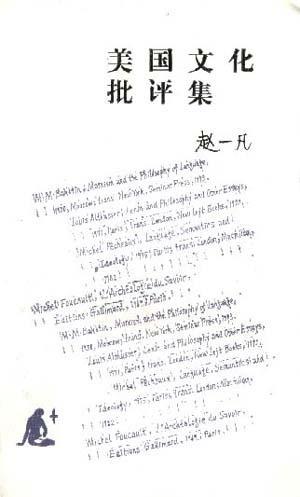 美国文化
批评集
赵一凡
M. Bakhtin, Marxism and the Philosophy of Language,
1930, Moscow; Trans. New York, Seminar Press, 1973.
Louis Althusser, Lenin and Philosophy and Other Essays,
Paris; Trans. London, New Left Books,
Michel Pêcheux, Language, Semantics and
Ideology, 1975, Paris; Trans. London, Macmillan,
1982.
Michel Foucault, L'Archéologie du Savoir.
Éditions Gallimard, 1969, Paris.
M. Bakhtin, Marxism and the Philosophy of Language,
1930, Moscow; Trans. New York, Seminar Press, 1973.
Louis Althusser, Lenin and Philosophy and Other Essays,
Paris; Trans. London, New Left Books,
Michel Pêcheux, Language, Semantics and
Ideology, 1975, Paris; Trans. London, Macmillan,
1982.
Michel Foucault, L'Archéologie du Savoir.
Éditions Gallimard, 1969, Paris.